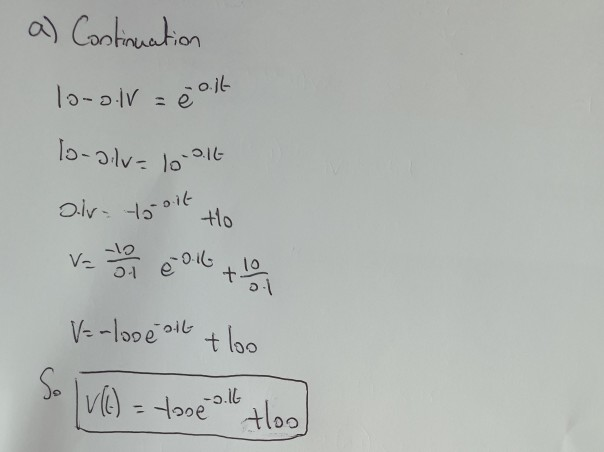 a) Continuation
10-0.1V = e^-0.1t
10-0.1v = 10^-0.1t
0.1v = -10^-0.1t +10
v = -10/0.1 e^-0.1t + 10/0.1
V = -100e^-0.1t + 100
So V(t) = -100e^-0.1t +100